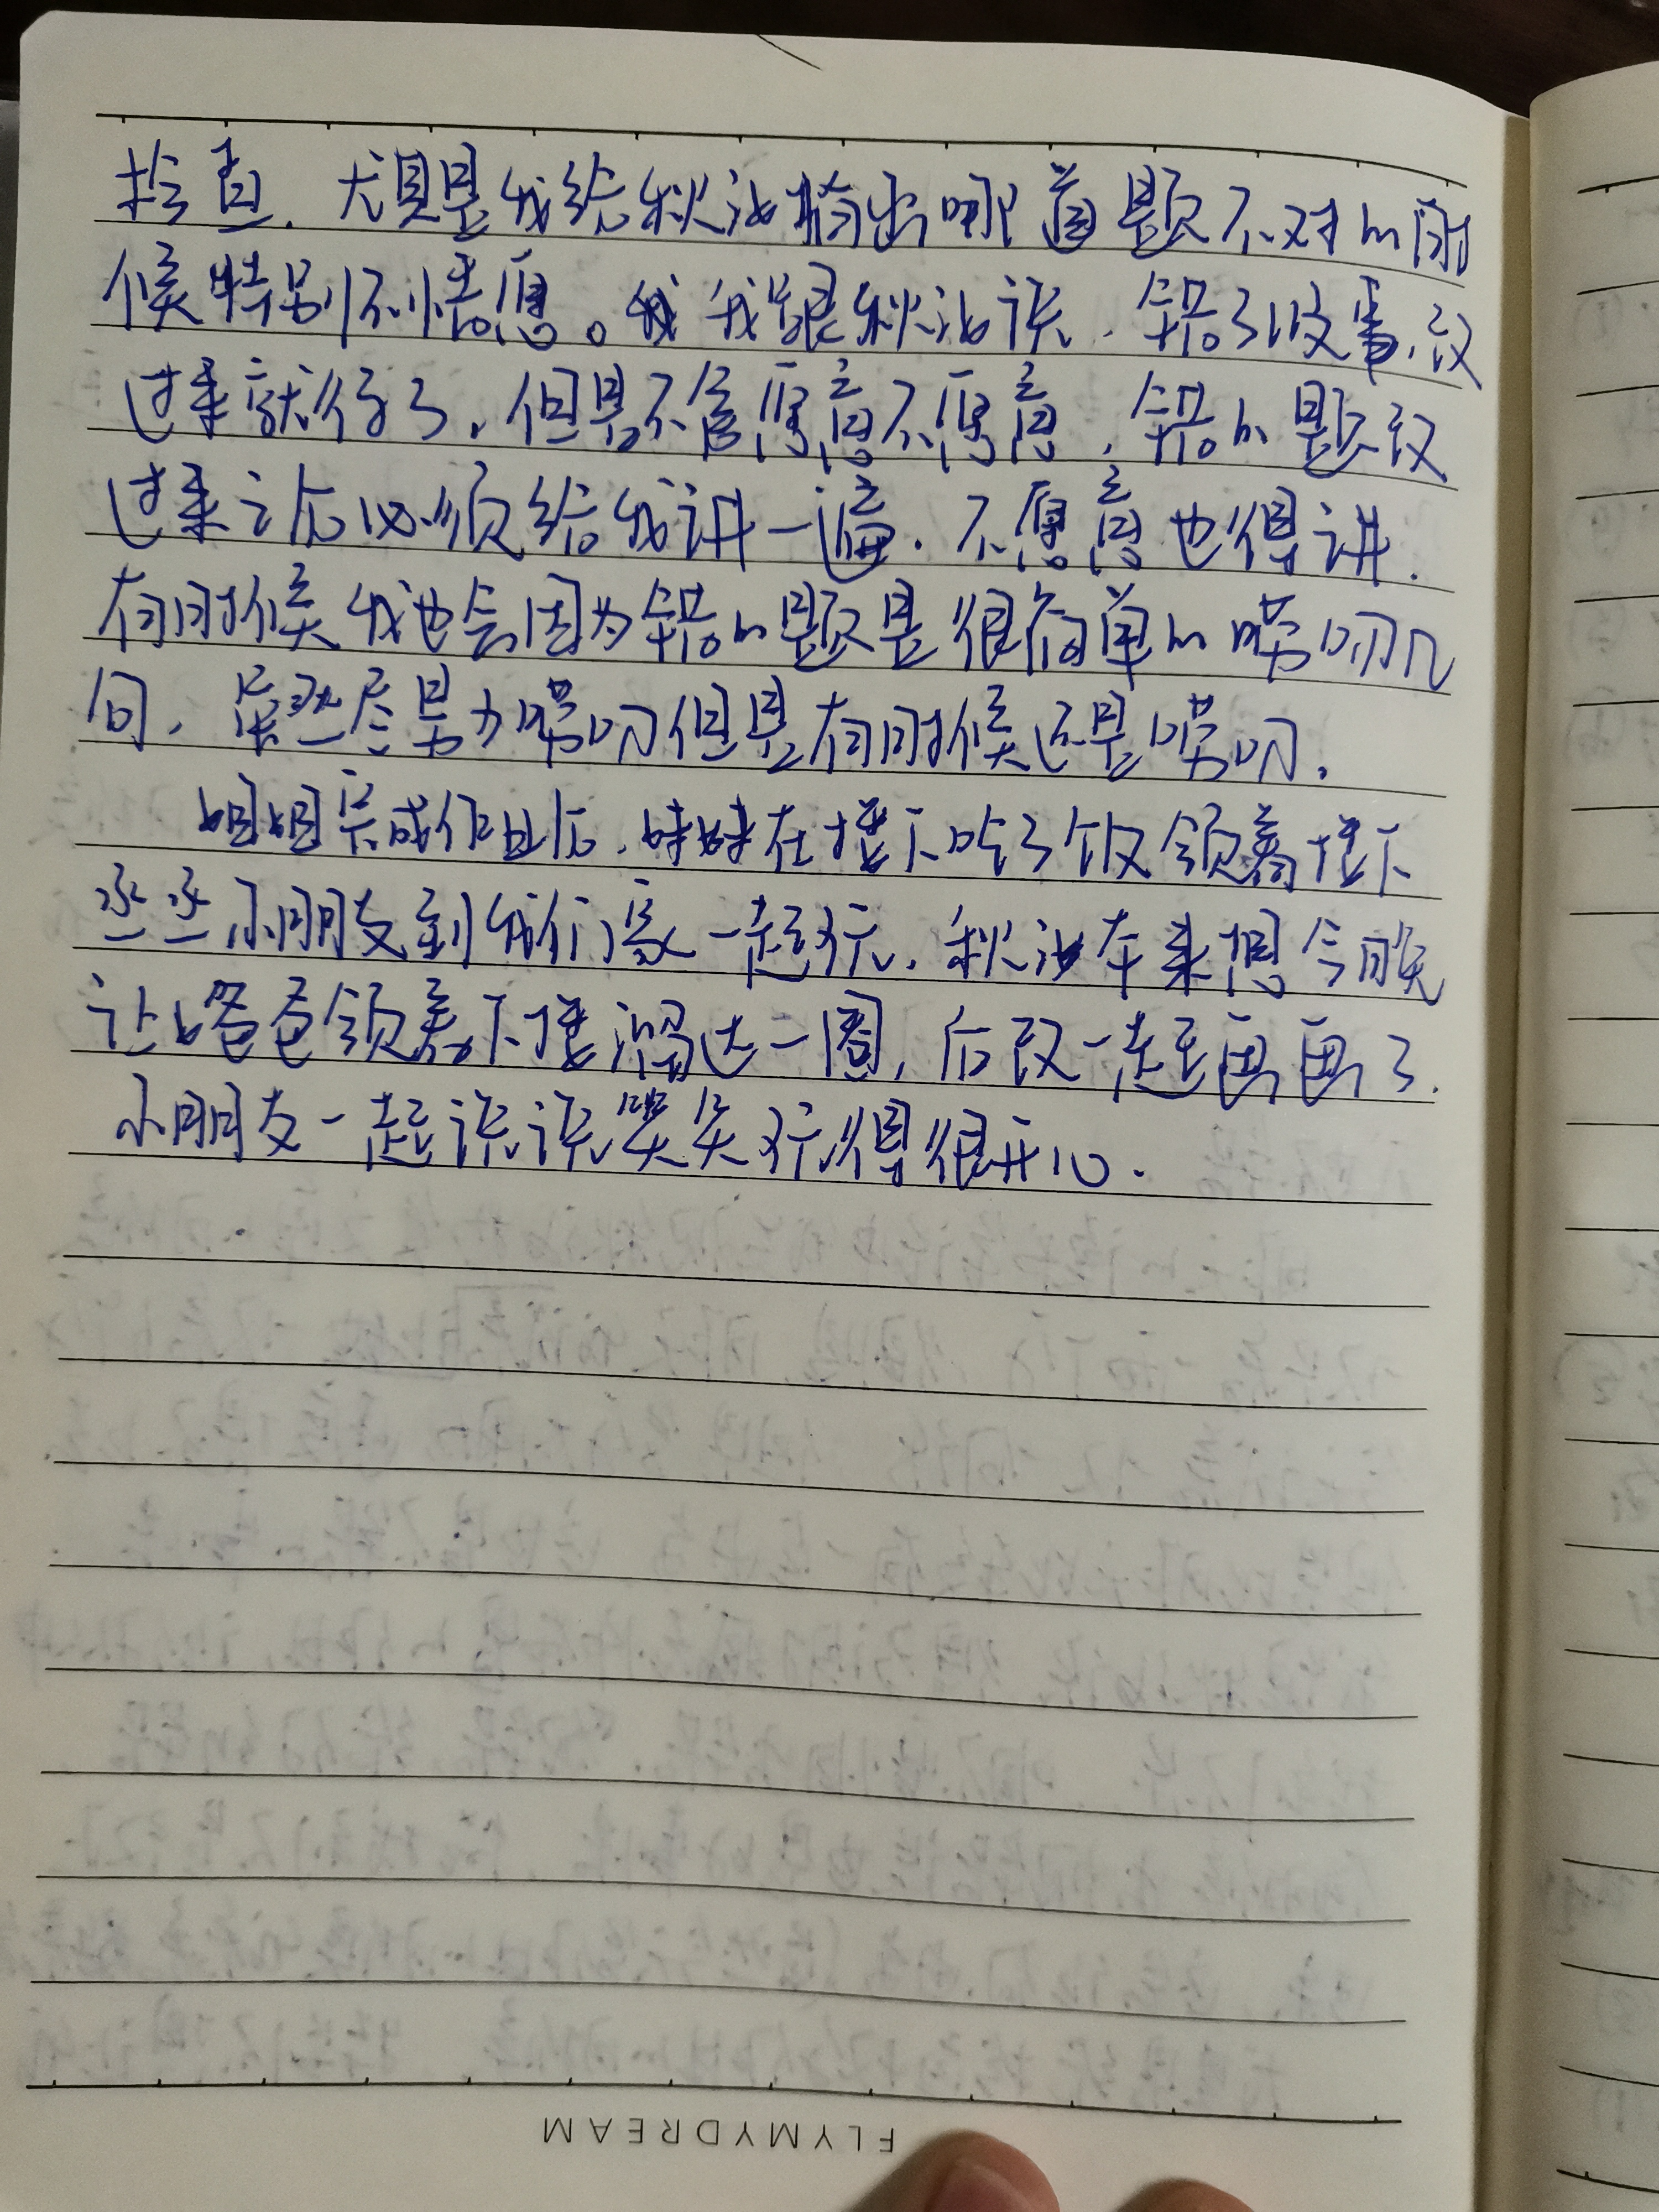 检查，尤其是我给秋汝指出哪道题不对的时
候特别不情愿。我跟秋汝说，错了没事，改
过来就行了，但是不管愿意不愿意，错的题改
过来之后必须给我讲一遍，不愿意也得讲，
有时候我也会因为错的题是很简单的唠叨几
句，虽然尽量少唠叨但是有时候还是唠叨。
姐姐完成作业后，妹妹在楼下吃了饭领着楼下
丞丞小朋友到我们家一起玩，秋汝本来想今晚
让爸爸领着下楼溜达一圈，后改一起画画了，
小朋友一起说说笑笑玩得很开心。
FLYMYDREAM